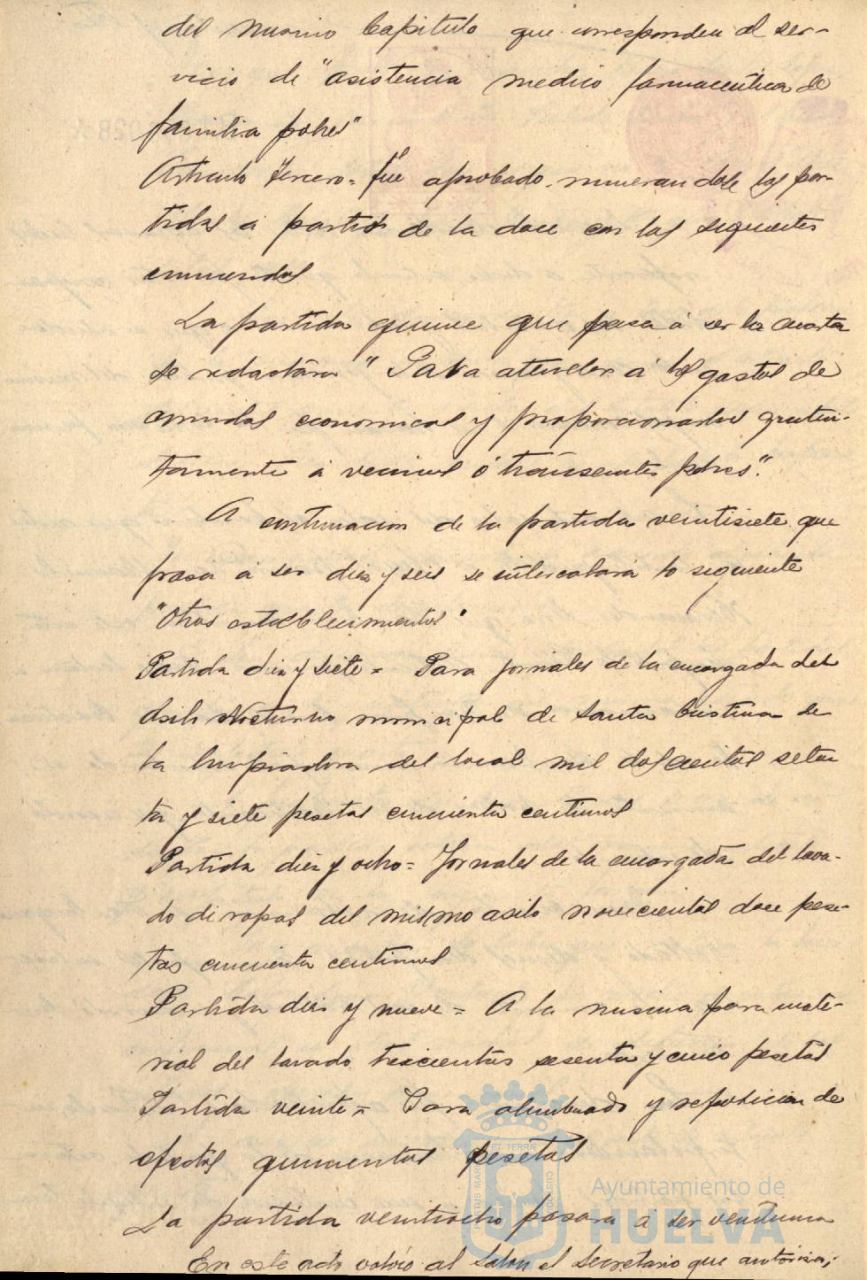 del mismo Capitulo que corresponden al ser-
vicio de "asistencia medico farmaceutica de
familia pobres"
Articulo tercero = fue aprobado numerandose las par-
tidas a partir de la doce con las siguientes
enmiendas
La partida quince que pasa á ser la cuarta
se redactára "Para atender á los gastos de
comidas economicas y proporcionarlas gratui-
tamente á vecinos ó transeuntes pobres".
A continuacion de la partida veintisiete que
pasa á ser diez y seis se intercalará lo siguiente
"Otros establecimientos"
Partida diez y siete = Para jornales de la encargada del
Asilo Nocturno municipal de Santa Cristina de
la limpiadora del local mil doscientas seten
ta y siete pesetas cincuenta centimos
Partida diez y ocho = Jornales de la encargada del lava-
do de ropas del mismo asilo novecientas doce pese-
tas cincuenta centimos
Partida diez y nueve = A la misma para mate-
rial del lavado trescientas sesenta y cinco pesetas
Partida veinte = Para alumbrado y reposicion de
efectos quinientas pesetas
La partida veintiocho pasara a ser veintiuna
En este acto volvió al salon el Secretario que autoriza;
Ayuntamiento de
HUELVA